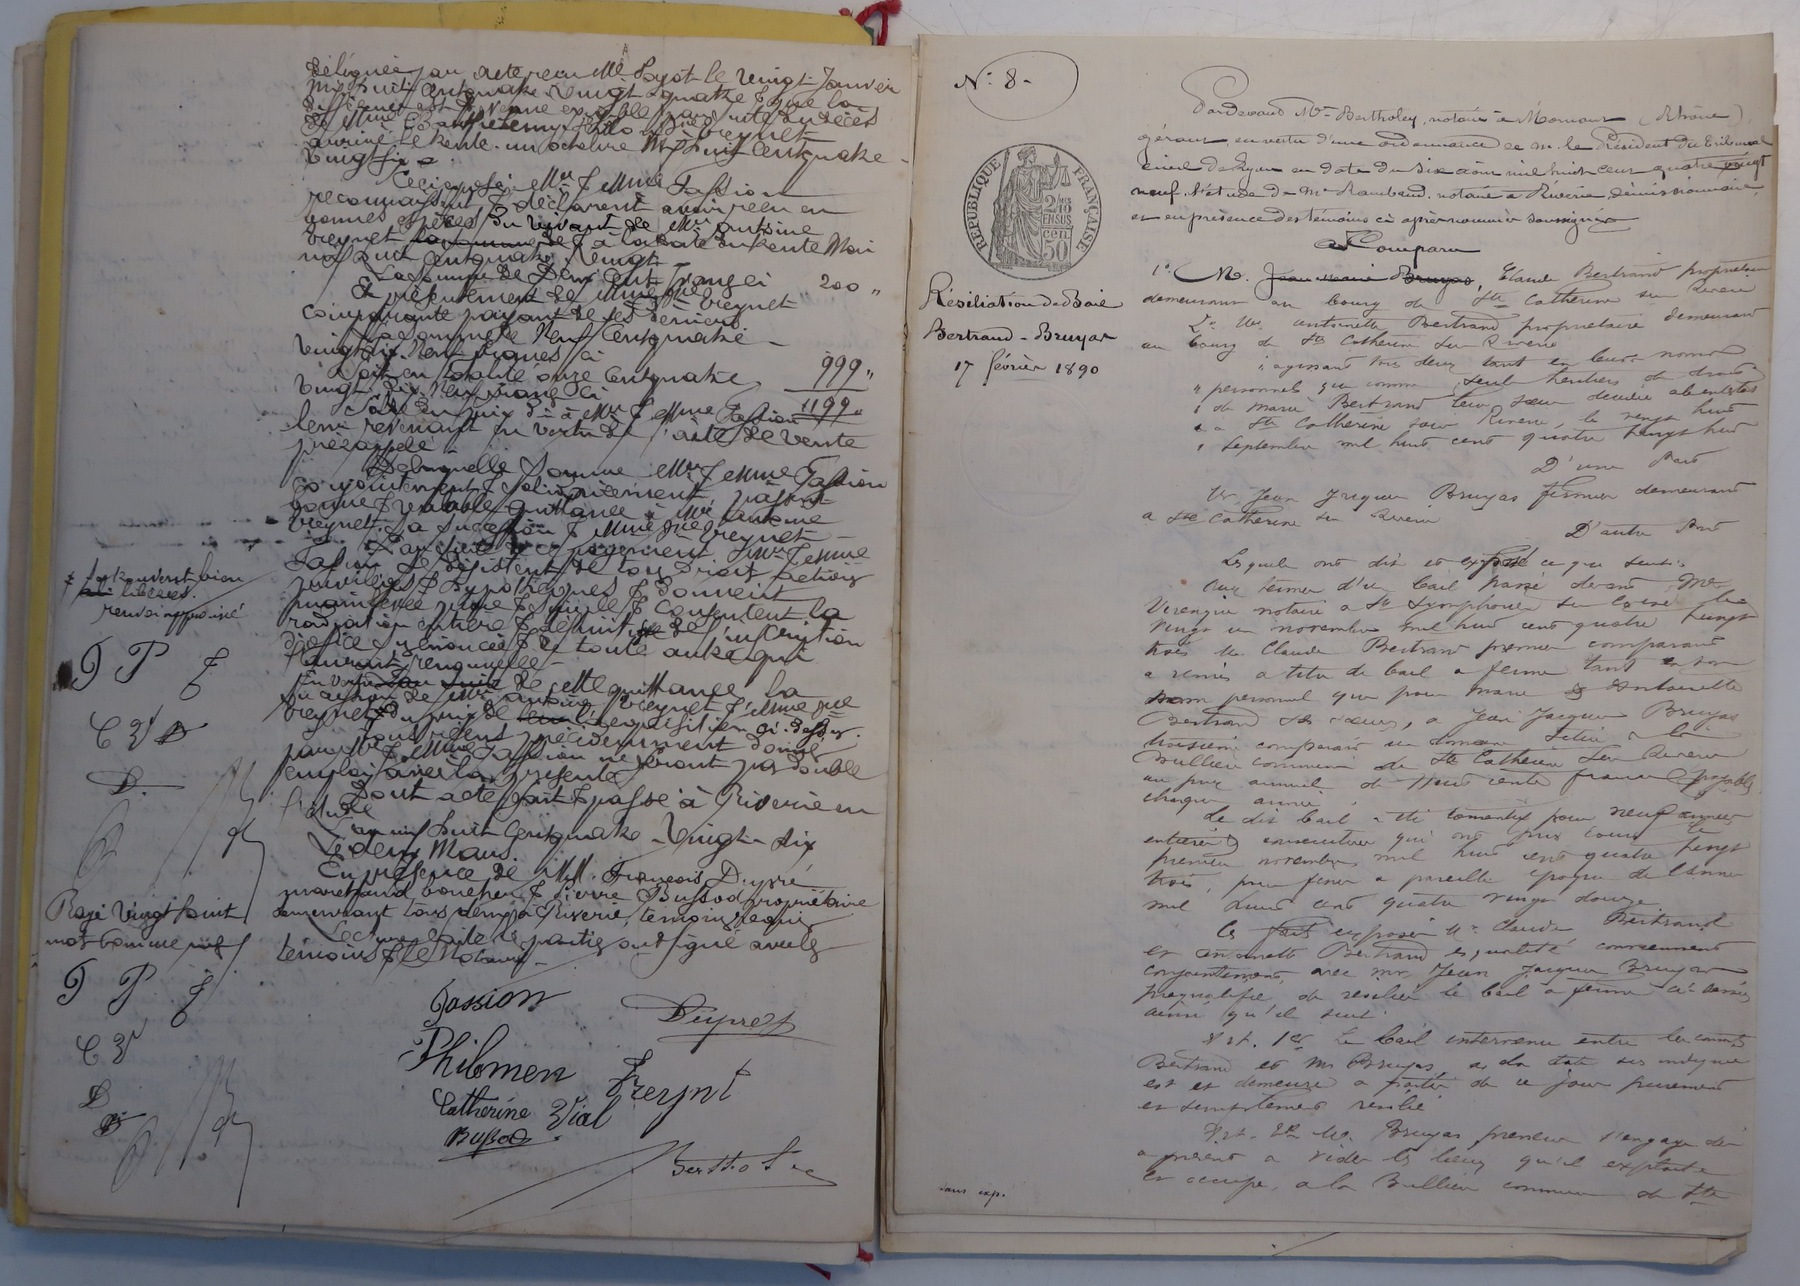 délégué par acte reçu Me Payot le vingt Janvier
mil huit cent quatre vingt quatre & que la
différence est devenue exigible par suite du décès
de Mme Barthélemy Philomène Veynet
arrivé le trente-un octobre mil huit cent quatre
vingt six.
Ceci exposé Mr & Mme Passion
reconnaissent & déclarent avoir reçu en
bonnes espèces du vivant de Mr Antoine
Veynet & à la date du trente Mai
mil huit cent quatre vingt
La somme de Deux cent francs ci 200 "
Et présentement de Mme Vve Veynet
comparante payant de ses deniers
La somme de Neuf cent quatre
vingt dix neuf francs ci 999 "
Soit en totalité onze cent quatre
vingt dix neuf francs ci 1199 "
leur revenant en vertu de l'acte de vente
prérappelé.
De laquelle somme Mr & Mme Passion
conjointement & solidairement, passent
bonne & valable quittance à Mr Antoine
Veynet, sa succession & Mme Vve Veynet
Par suite de ce payement Mr & Mme
Passion se désistent de tous droits, actions
privilèges & hypothèques & donnent
mainlevée pure & simple & consentent la
radiation entière & définitive de l'inscription
d'office énoncée & de toute autre qui
l'aurait renouvelée.
En vertu de cette quittance la
succession de Mr Antoine Veynet & Mme Vve
Veynet du prix de l'acquisition ci-dessus.
Tous reçus précédemment donnés
par Mr & Mme Passion ne feront pas double
emploi avec la présente
Dont acte fait & passé à Riverie en
l'étude
L'an mil huit cent quatre-vingt-dix
Le deux Mars.
En présence de MM. François Dupré
marchand boucher & Pierre Bussod propriétaire
demeurant tous deux à Riverie, témoins requis
Lecture faite les parties ont signé avec les
témoins & le Notaire.
se trouvent bien
libérés.
renvoi approuvé
P P F
C V D
D.
Rayé vingt huit
mots comme nuls
P P F
C V
D
B
Passion
Dupré
Philomen Freynt
Catherine Vial
Bussod
Bertholey
N° 8-
RÉPUBLIQUE FRANÇAISE
2/10 EN SUS
50 cen.
Résiliation de Bail
Bertrand-Bruyas
17 février 1890
sans exp.
Pardevant Me Bertholey, notaire à Mornant (Rhône),
gérant, en vertu d'une ordonnance de M. le Président du Tribunal
civil de Lyon en date du six août mil huit cent quatre vingt
neuf, l'étude de Me Rambaud, notaire à Riverie, démissionnaire,
et en présence des témoins ci après nommés soussignés
A Comparu
1° M. Jean-Marie Bruyas, Claude Bertrand propriétaire
demeurant au bourg de Ste Catherine sur Riverie
2° Mlle Antoinette Bertrand propriétaire demeurant
au bourg de Ste Catherine sur Riverie
" agissant tous deux tant en leurs noms
" personnels que comme seuls héritiers de droit
" de Marie Bertrand leur sœur décédée ab intestat
" à Ste Catherine sous Riverie, le vingt huit
" septembre mil huit cent quatre vingt huit
D'une Part
Mr Jean Jacques Bruyas fermier demeurant
à Ste Catherine sur Riverie
D'autre Part
Lesquels ont dit et exposé ce qui suit:
Aux termes d'un bail passé devant Me
Verengue notaire à St Symphorien sur Coise le
vingt un novembre mil huit cent quatre vingt
trois Mr Claude Bertrand premier comparant
a remis à titre de bail à ferme tant en son
nom personnel que pour Marie & Antoinette
Bertrand ses sœurs, à Jean Jacques Bruyas
troisième comparant un domaine situé à la
Bullieu commune de Ste Catherine sur Riverie
au prix annuel de francs payables
chaque année.
Le dit bail a été consenti pour neuf années
entières & consécutives qui ont pris cours le
premier novembre mil huit cent quatre vingt
trois, pour finir à pareille époque de l'année
mil huit cent quatre vingt douze.
Ce fait exposé Mr Claude Bertrand
et Antoinette Bertrand esqualité conviennent
conjointement avec Mr Jean Jacques Bruyas
prequalifié, de résilier le bail à ferme ci-dessus
ainsi qu'il suit:
Art. 1er Le bail intervenu entre les consorts
Bertrand et Mr Bruyas, à la date sus indiquée
est et demeure à partir de ce jour purement
et simplement résilié.
Art. 2e Mr Bruyas preneur s'engage dès
à présent à vider les lieux qu'il exploite
et occupe, à la Bullieu commune de Ste